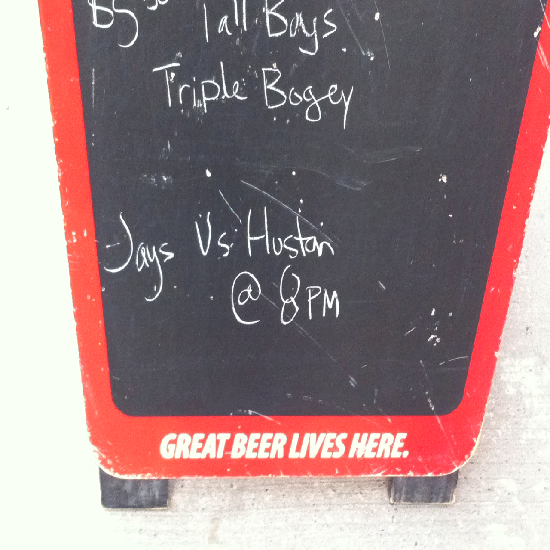 $5.50 Tall Boys
Triple Bogey
Jays Vs Hustan
@ 8PM
GREAT BEER LIVES HERE.